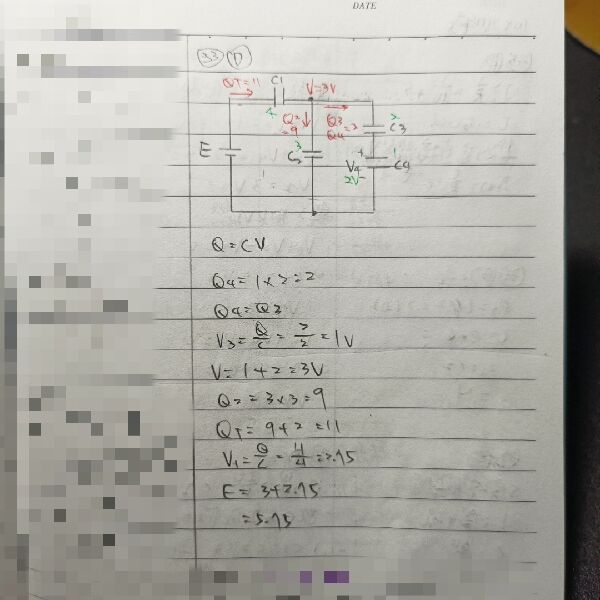 DATE
33 (D)
QT=11 C1 V=3V
4 Q2=9 Q3 Q4=2 2 C3
E 3 C2 + 1 C4
V4 2V -
Q=CV
Q4=1×2=2
Q4=Q3
V3=Q/C=2/2=1V
V=1+2=3V
Q2=3×3=9
QT=9+2=11
V1=Q/C=11/4=2.75
E=3+2.75
=5.75